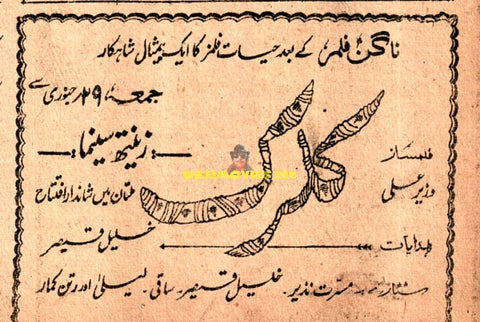 ناگن فلمز کے بعد حیات فلمز کا ایک بیمثال شاہکار
جمعہ، ۲۹؍ جنوری سے
کلرک
زینتھ سینما؛
ملتان میں شاندار افتتاح
فلمساز
وزیر علی
ہدایات
خلیل قیصر
ستارے۔ مسرت نذیر۔ خلیل قیصر۔ ساقی۔ لیلیٰ اور رتن کمار